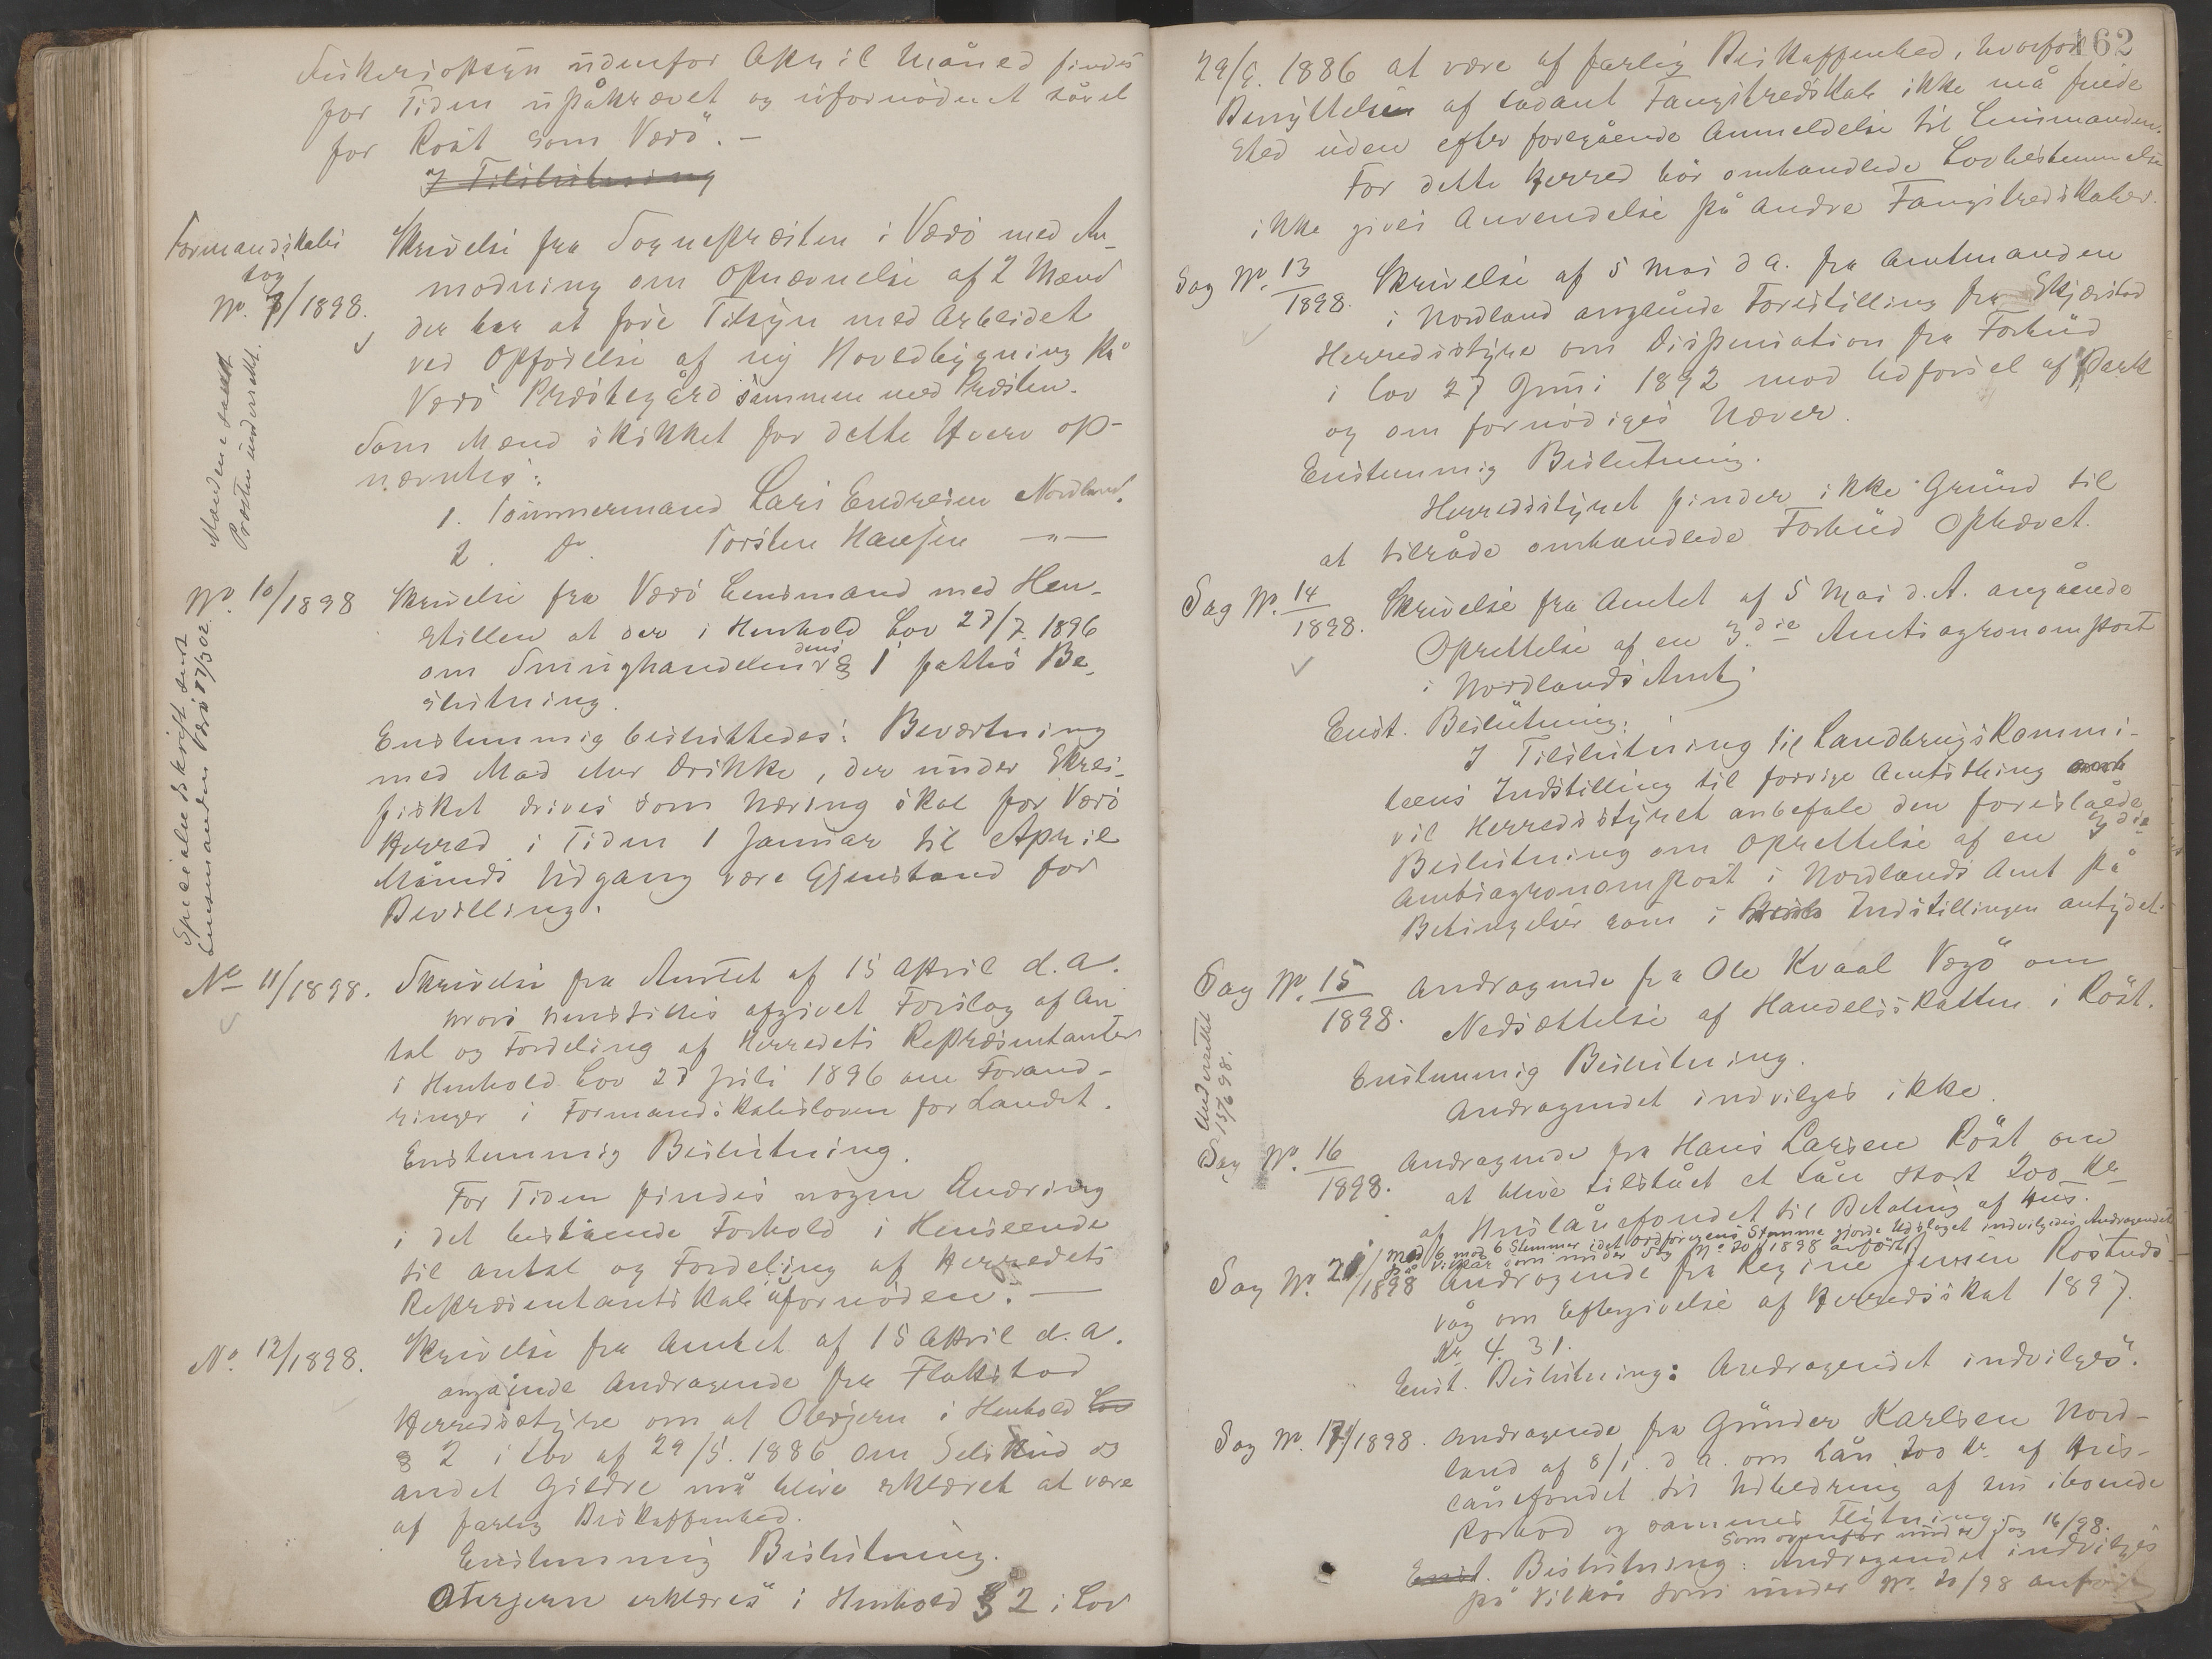 Fiskeriopsyn udenfor April Måned findes
for Tiden upåkrævet og ufornødent såvel
for Røst som Værö. —
I Tilslutning
Formandskabs
sag
No. 7/1898.
Skrivelse fra Sognepræsten i Værö med An-
modning om Opnævnelse af 2 Mænd
der har at føre Tilsyn med Arbeidet
ved Opførelse af ny Hovedbygning på
Værö Præstegård sammen med Præsten.
Som Mænd skikket for dette Hverv op-
nævntes:
1. Tömmermand Lars Endresen Nordland.
2. do. Torsten Hansen —"—
Mændene samt
Præsten underrettet.
No. 10/1898
Skrivelse fra Værö Lensmand med Hen-
stillen at der i Henhold Lov 27/7. 1896
om Smughandelen dens § 1 fattes Be-
slutning.
Enstemmig besluttedes: Beværtning
med Mad eller Drikke, der under Skrei-
fisket drives som Næring skal for Værö
Herred i Tiden 1 Januar til April
Måneds Udgang være Gjenstand for
Bevilling.
Specialudskrift sendt
Lensmanden Værö 17/3 02.
No 11/1898.
Skrivelse fra Amtet af 15 April d.A.
hvori henstilles afgivet Forslag af An
tal og Fordeling af Herredets Repræsentanter
i Henhold Lov 27 Juli 1896 om Forand-
ringer i Formandskabsloven for Landet.
Enstemmig Beslutning.
For Tiden findes nogen Ændring
i det bestående Forhold i Henseende
til Antal og Fordeling af Herredets
Repræsentantskab ufornöden. —
No. 12/1898.
Skrivelse fra Amtet af 15 April d.A.
angående Andragende fra Flakstad
Herredsstyre om at Oterjern i Henhold Lov
§ 2 i Lov af 29/5. 1886 om Selskud og
andet Gildre må blive erklæret at være
af farlig Beskaffenhed.
Enstemmig Beslutning.
Oterjern erklæres i Henhold § 2 i Lov
162
29/5. 1886 at være af farlig Beskaffenhed, hvorfor
Benyttelsen af sådant Fangstredskab ikke må finde
Sted uden efter foregående Anmeldelse til Lensmanden.
For dette Herred bör omhandlede Lovbestemmelse
ikke gives Anvendelse på andre Fangstredskaber.
Sag No. 13/1898.
Skrivelse af 5 Mai d A. fra Amtmanden
i Nordland angående Forestilling fra Skjærstad
Herredsstyre om Dispensation fra Forbud
i Lov 27 Juni 1892 mod Udførsel af Bark
og om fornødiges Næver.
Enstemmig Beslutning.
Herredsstyret finder ikke Grund til
at tilråde omhandlede Forbud Ophævet.
Sag No. 14/1898.
Skrivelse fra Amtet af 5 Mai d.A. angående
Oprettelse af en 3die Amtsagronompost
i Nordlands Amt
Enst. Beslutning:
I Tilslutning til Landbrugskommi-
teens Indstilling til forrige Amtsthing
vil Herredsstyret anbefale den foreslåede
Beslutning om Oprettelse af en 3die
Amtsagronompost i Nordlands Amt på
Betingelser som i Indstillingen antydet.
Sag No. 15/1898.
Andragende fra Ole Kvaal Vægö om
Nedsættelse af Handelsskatten i Röst.
Enstemmig Beslutning.
Andragendet indvilges ikke.
Underrettet
15/6 98.
Sag No. 16/1898.
Andragende fra Hans Larsen Röst om
at blive tilstået et Lån stort 200 Kr
af Huslånefondet til Betaling af Hus.
Med 6 mod 6 Stemmer idet Ordförerens Stemme gjorde Udslaget indvilgedes Andragendet
på Vilkår som under Sag No. 20/1898 anfört.
Sag No. 21/1898
Andragende fra Regine Jensen Röstnes-
våg om Eftergivelse af Herredsskat 1897.
Kr 4.31.
Enst. Beslutning: Andragendet indvilges.
Sag No. 17/1898.
Andragende fra Gunder Karlsen Nord-
land af 8/1. d A. om Lån 200 Kr. af Hus-
lånefondet til Udbedring af sin iboende
Rorbod og sammes Flytning.
Som ovenfor under Sag 16/98.
Enst. Beslutning: Andragendet indvilges
på Vilkår som under No. 20/98 anført